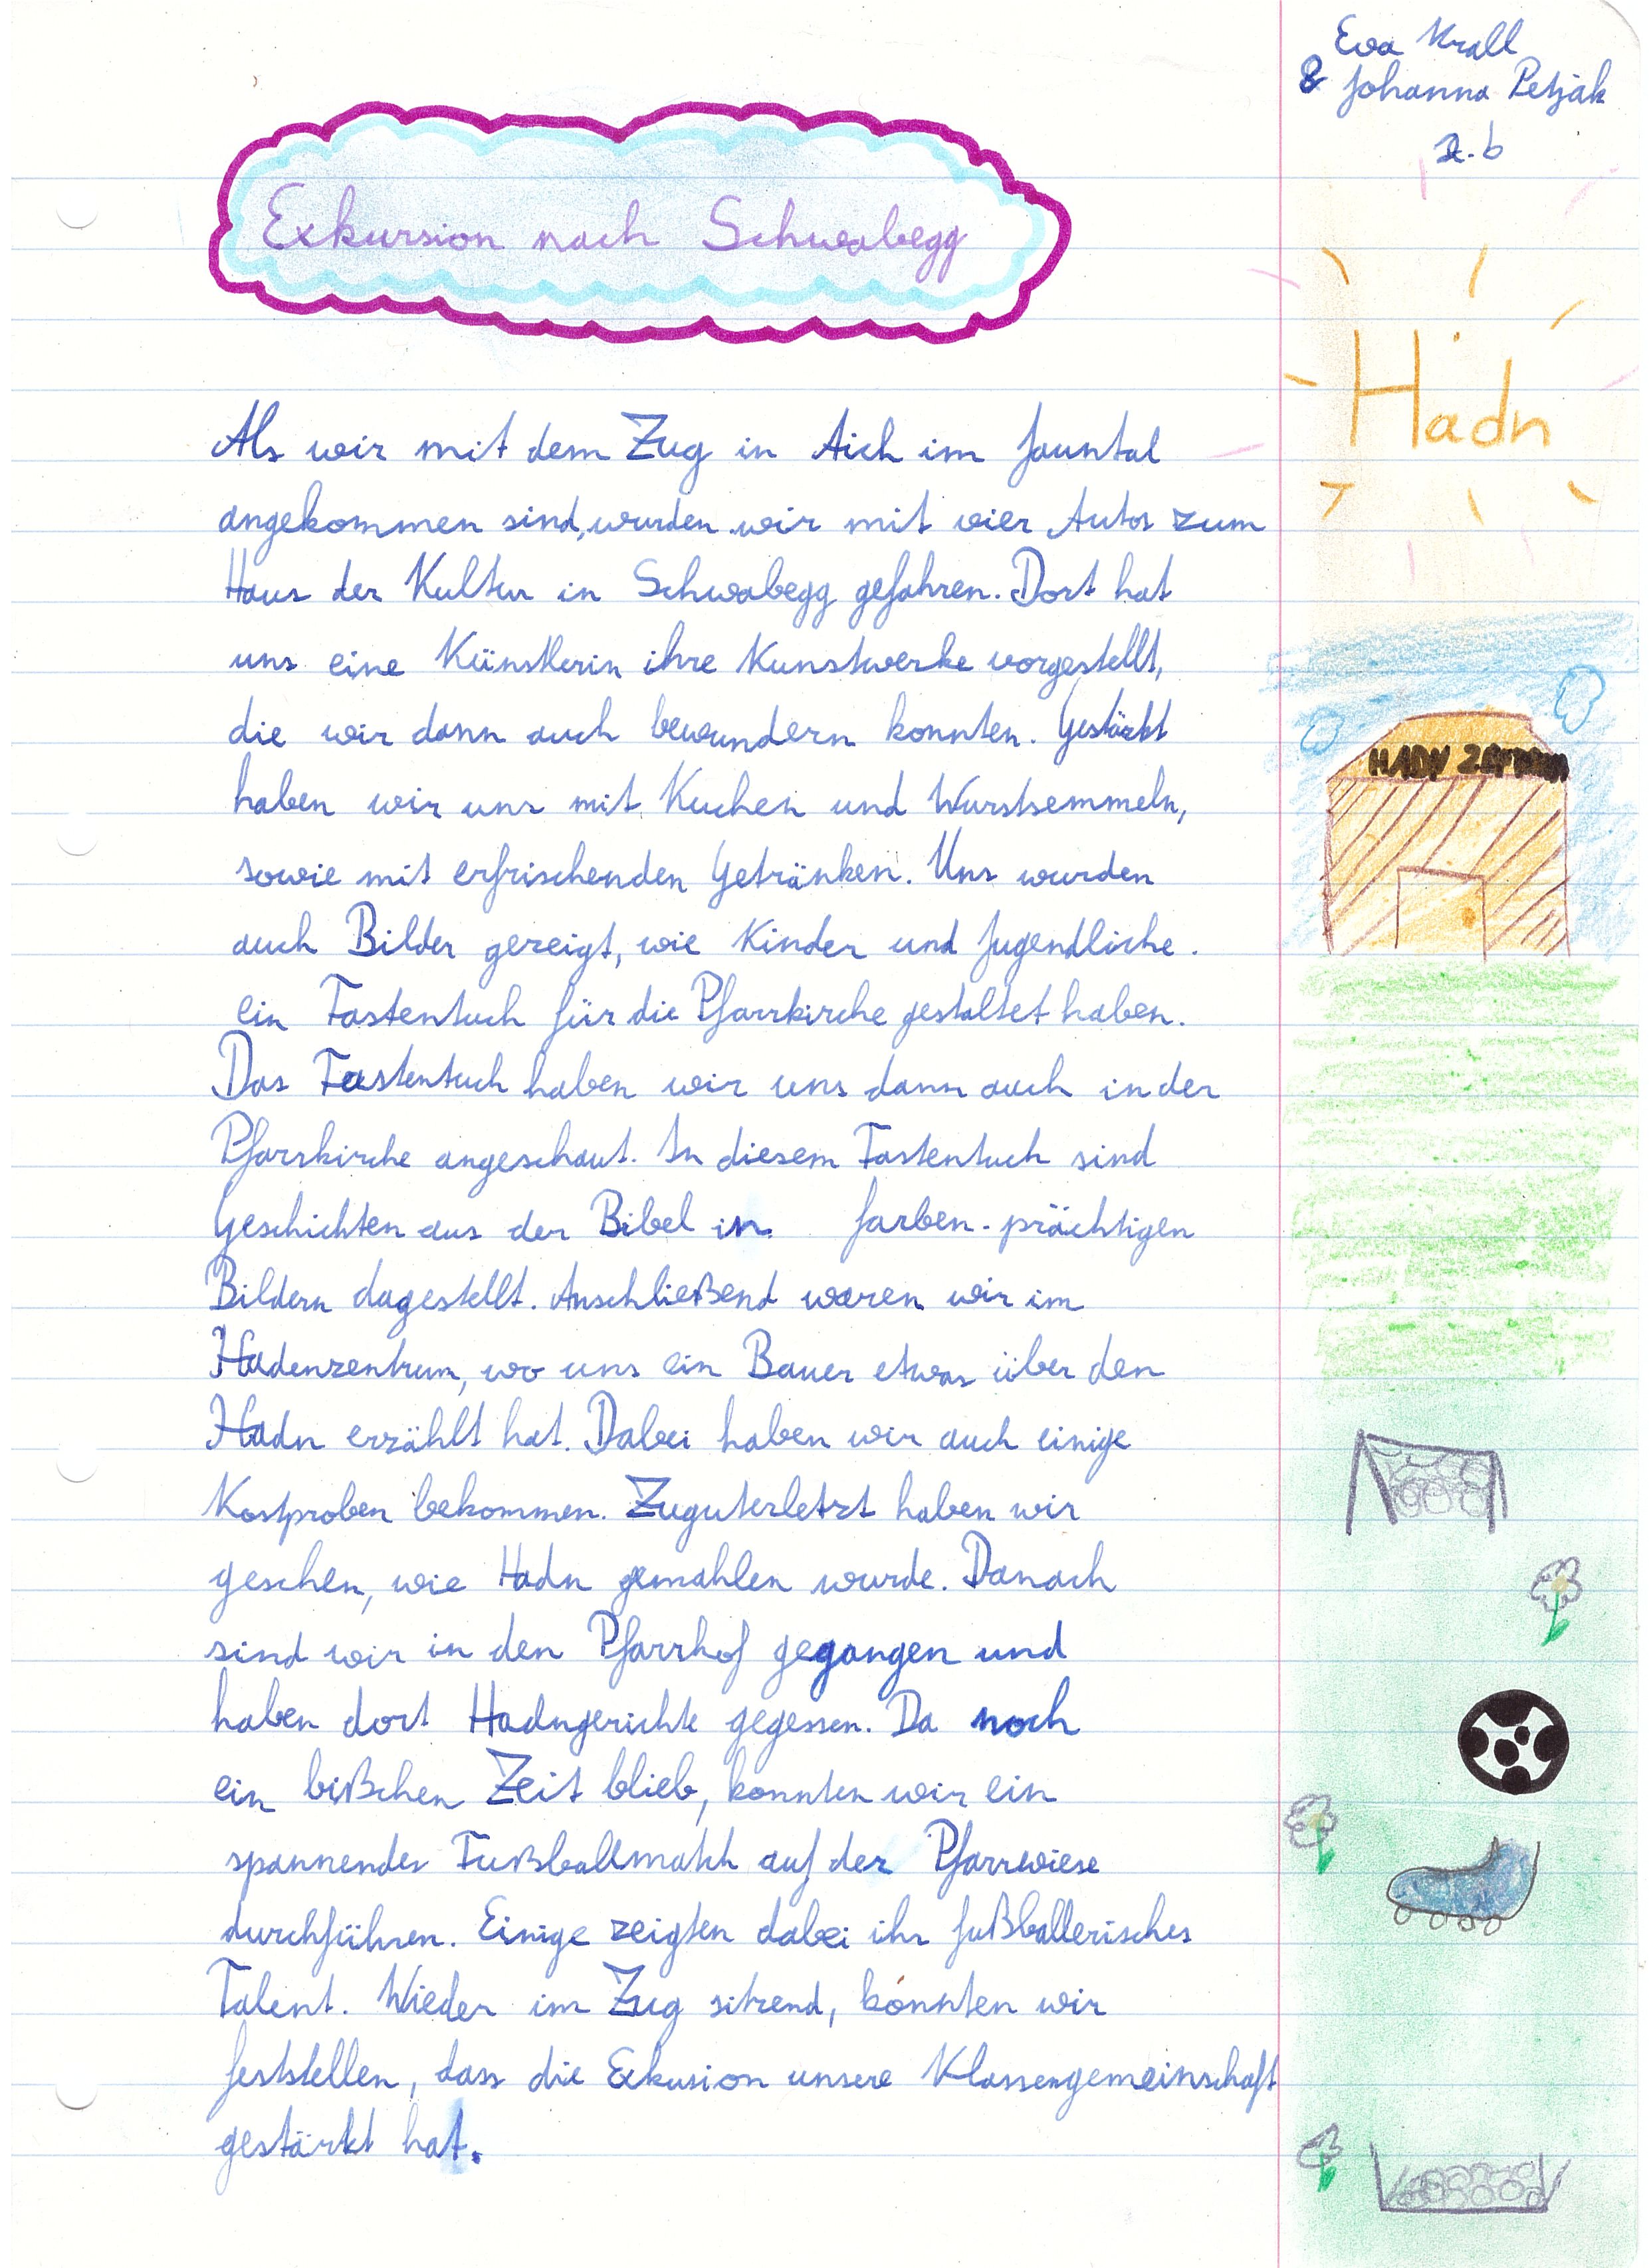 Eva Krall
& Johanna Petjak
2.b
Exkursion nach Schwabegg
Hadn
Als wir mit dem Zug in Aich im Jauntal
angekommen sind, wurden wir mit vier Autos zum
Haus der Kultur in Schwabegg gefahren. Dort hat
uns eine Künstlerin ihre Kunstwerke vorgestellt,
die wir dann auch bewundern konnten. Gestärkt
haben wir uns mit Kuchen und Wurstsemmeln,
sowie mit erfrischenden Getränken. Uns wurden
auch Bilder gezeigt, wie Kinder und Jugendliche
ein Fastentuch für die Pfarrkirche gestaltet haben.
Das Fastentuch haben wir uns dann auch in der
Pfarrkirche angeschaut. In diesem Fastentuch sind
Geschichten aus der Bibel in farben-prächtigen
Bildern dagestellt. Anschließend waren wir im
Hadenzentrum, wo uns ein Bauer etwas über den
Hadn erzählt hat. Dabei haben wir auch einige
Kostproben bekommen. Zuguterletzt haben wir
gesehen, wie Hadn gemahlen wurde. Danach
sind wir in den Pfarrhof gegangen und
haben dort Hadngerichte gegessen. Da noch
ein bißchen Zeit blieb, konnten wir ein
spannendes Fußballmatch auf der Pfarrwiese
durchführen. Einige zeigten dabei ihr fußballerisches
Talent. Wieder im Zug sitzend, konnten wir
feststellen, dass die Exkusion unsere Klassengemeinschaft
gestärkt hat.
HADN